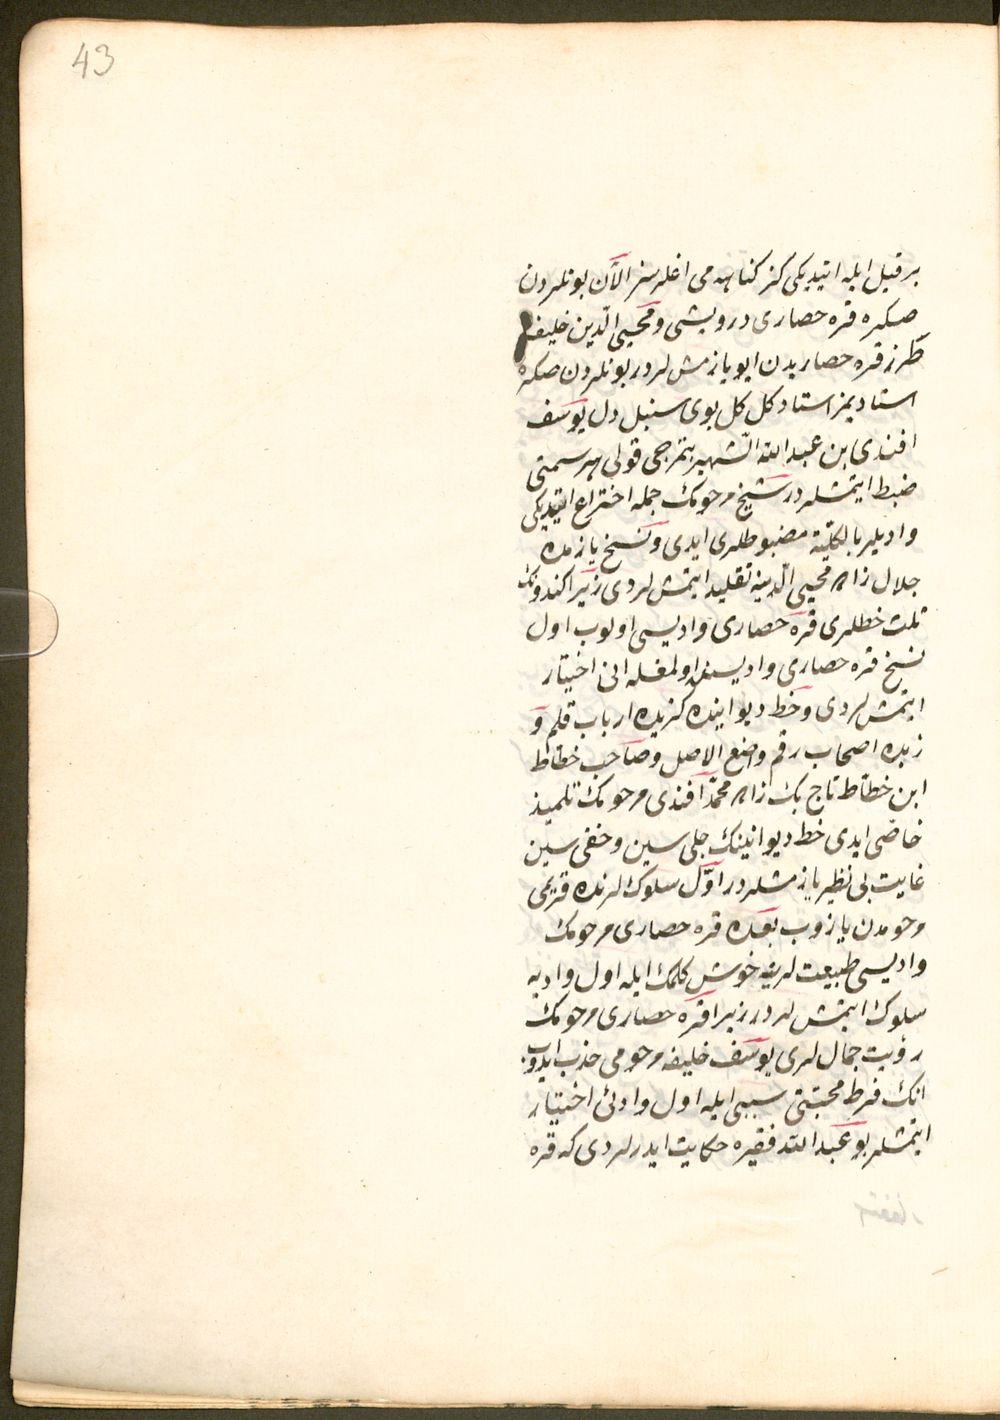 43
بر قبل ايله ايتديكى كز كناهه مى اغلرسز الآن بونلردن
صكره قره حصارى درويشى ومحيى الدين خليفه
طرز قره حصاريدن ايو يازمشلردر بونلردن صكره
استاديمز استاد كل كل بوى سنبل دل يوسف
افندى بن عبد الله الشهير بتمرجى قولى هر سمتى
ضبط ايتمشلردر شيخ مرحومك جمله اختراع ايتديكى
واديلر بالكليه مضبوطلرى ايدى ونسخ يازمده
جلال زاده محيى الدينه تقليد ايتمشلردى زيرا كندونك
ثلث خطلرى قره حصارى واديسى اولوب اول
نسخ قره حصارى واديسنده اولمغله انى اختيار
ايتمشلردى وخط ديوانيده كزيده ارباب قلم و
زبده اصحاب رقم واضع الاصل وصاحب خطاط
ابن خطاط تاج بك زاده محمد افندى مرحومك تلميذ
خاصى ايدى خط ديوانينك جلى سين وخفى سين
غايت بى نظير يازمشلردر اول سلوكلرنده قريمى
مرحومدن يازوب بعده قره حصارى مرحومك
واديسى طبيعتلرينه خوش كلمك ايله اول واديه
سلوك ايتمشلردر زيرا قره حصارى مرحومك
رؤيت جماللرى يوسف خليفه مرحومى جذب ايدوب
انك فرط محبتى سببى ايله اول وادئ اختيار
ايتمشلر بو عبد الله فقيره حكايت ايدرلردى كه قره